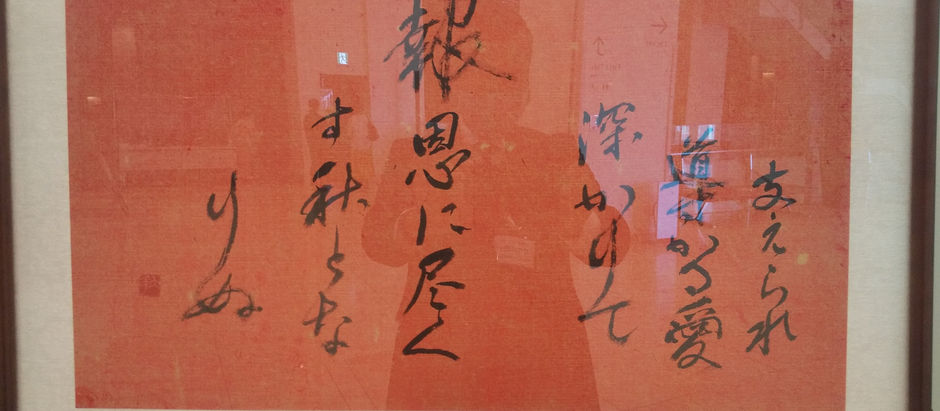 支えられ
導かる愛
深かりて
報恩に尽く
す秋とな
りぬ